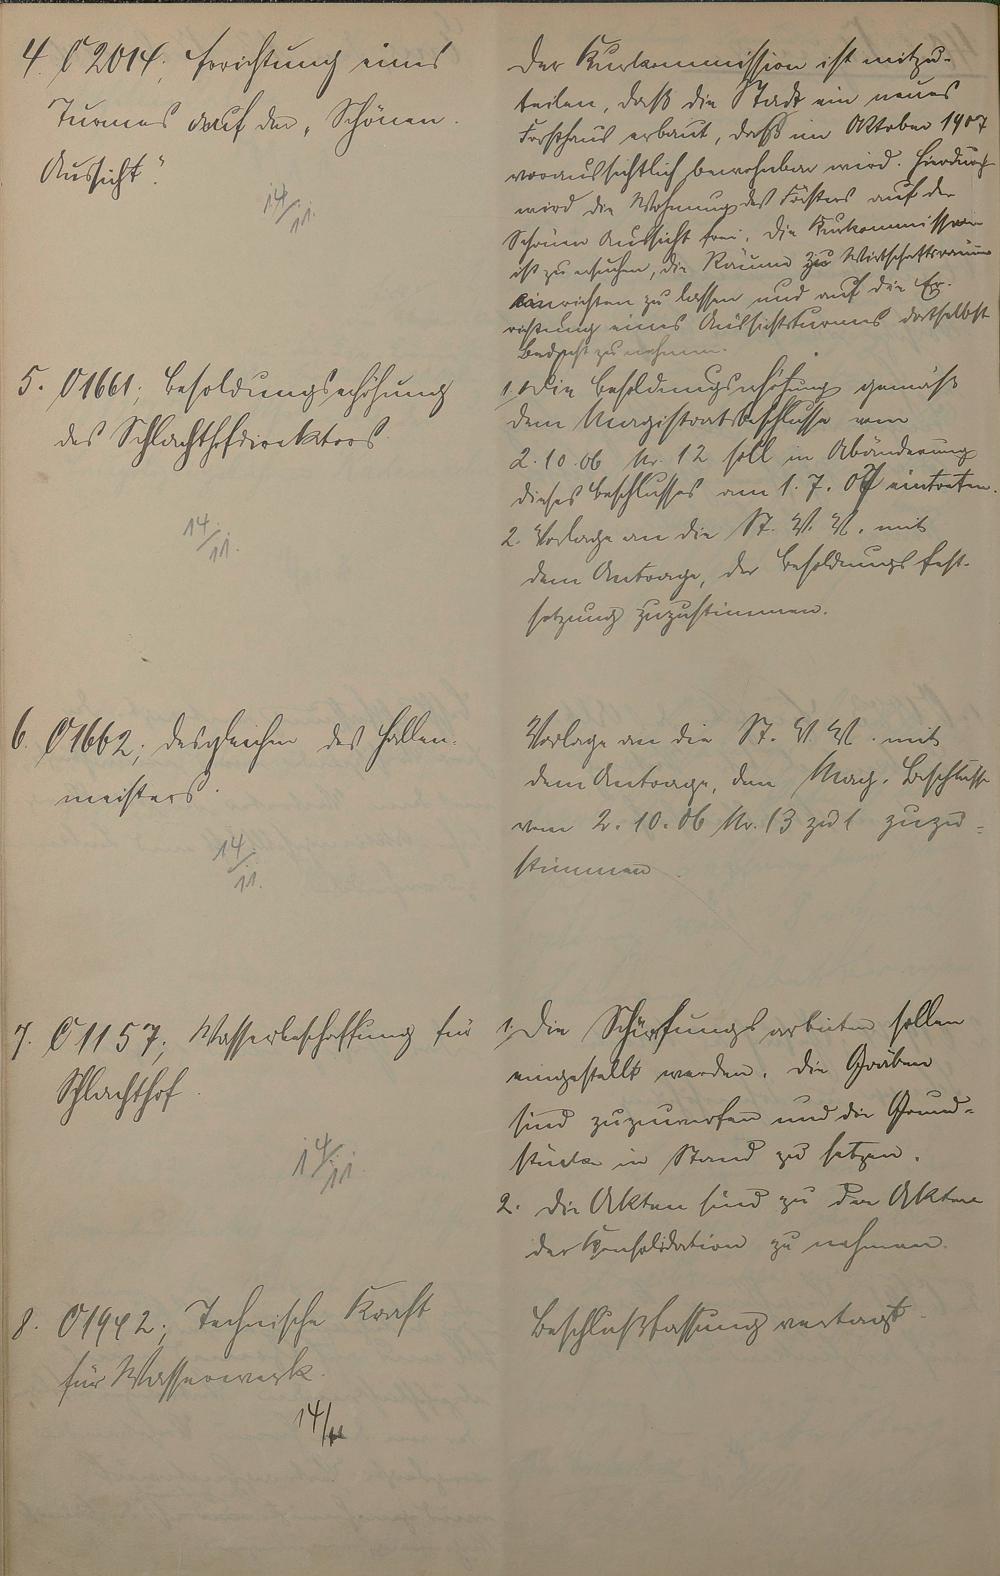 4. C 2014; Errichtung eines
Turmes auf der „Schönen
Aussicht".
14/11.
Der Kurkommission ist mitzu-
teilen, daß die Stadt ein neues
Forsthaus erbaut, daß im Oktober 1907
voraussichtlich bewohnbar wird. Hierdurch
wird die Wohnung des Försters auf der
Schönen Aussicht frei. Die Kurkommission
ist zu ersuchen, die Räume zu Wirtschaftsräumen
einrichten zu lassen und auf die Er-
richtung eines Aussichtsturmes dortselbst
Bedacht zu nehmen.
5. C 1661; Besoldungserhöhung
des Schlachthofdirektors.
14/11.
1. Die Besoldungserhöhung gemäß
dem Magistratsbeschlusse vom
2.10.06 Nr. 12 soll in Abänderung
dieses Beschlusses am 1.7.07 eintreten.
2. Vorlage an die St. V. V. mit
dem Antrage, der Besoldungsfest-
setzung zuzustimmen.
6. C 1662; desgleichen des Hallen-
meisters.
14/11.
Vorlage an die St. V. V. mit
dem Antrage, dem Mag. Beschlusse
vom 2.10.06 Nr. 13 zu 1 zuzu-
stimmen.
7. C 1157; Wasserbeschaffung für
Schlachthof.
14/11.
1. Die Schürfungsarbeiten sollen
eingestellt werden. Die Gräben
sind zuzuwerfen und die Grund-
stücke in Stand zu setzen.
2. Die Akten sind zu den Akten
der Konsolidation zu nehmen.
8. C 1942; Technische Kraft
für Wasserwerk.
14/11
Beschlußfassung vertagt.